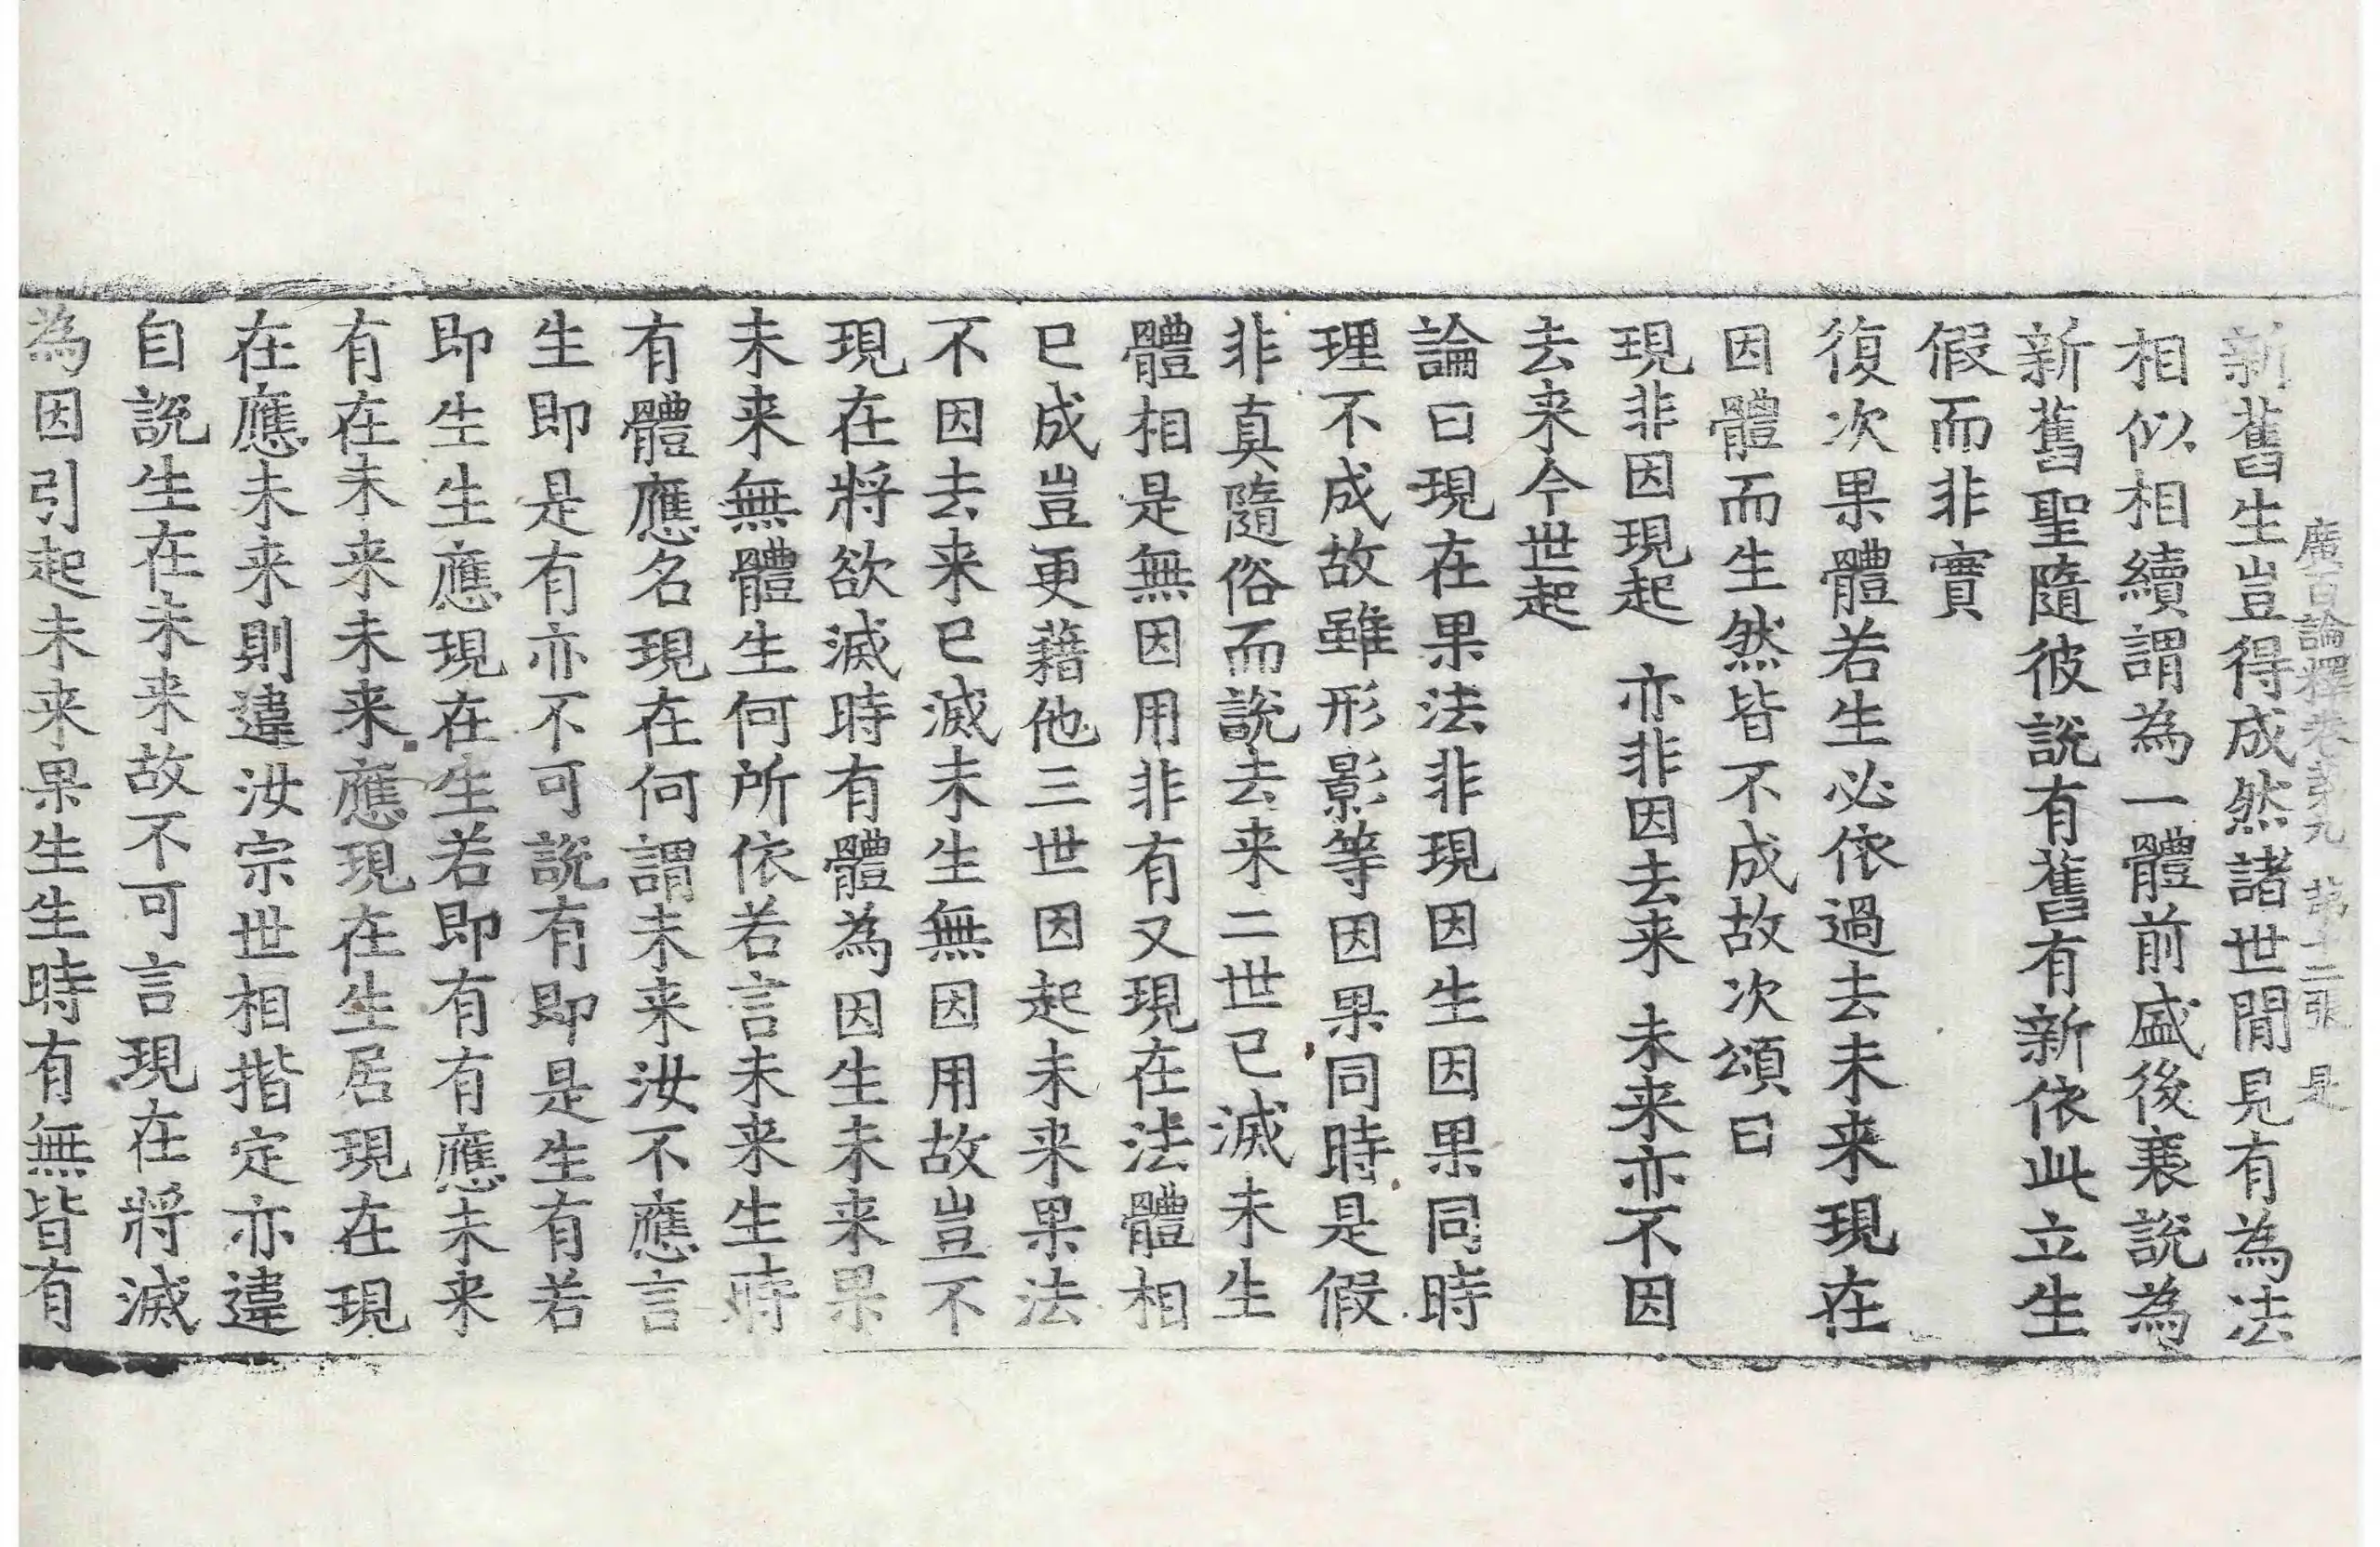 廣百論釋卷第九 第十二張 是
新舊生豈得成然諸世閒見有為法
相似相續謂為一體前盛後衰說為
新舊聖隨彼說有舊有新依此立生
假而非實
復次果體若生必依過去未来現在
因體而生然皆不成故次頌曰
現非因現起 亦非因去来 未来亦不因
去来今世起
論曰現在果法非現因生因果同時
理不成故雖形影等因果同時是假
非真隨俗而說去来二世已滅未生
體相是無因用非有又現在法體相
已成豈更藉他三世因起未来果法
不因去来已滅未生無因用故豈不
現在將欲滅時有體為因生未来果
未来無體生何所依若言未来生時
有體應名現在何謂未来汝不應言
生即是有亦不可說有即是生有若
即生生應現在生若即有有應未来
有在未来未来應現在生居現在現
在應未来則違汝宗世相揩定亦違
自說生在未来故不可言現在將滅
為因引起未来果生生時有無皆有